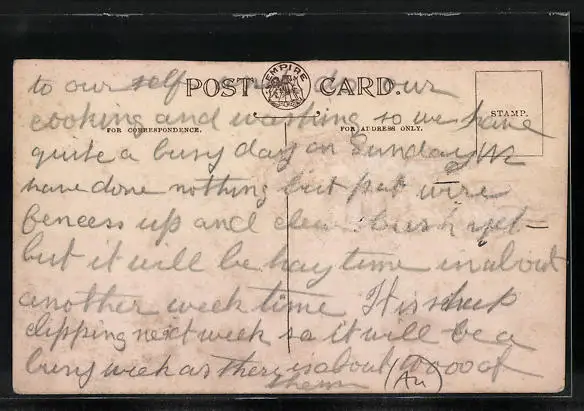 to our self and do our
POST CARD.
EMPIRE
STAMP.
cooking and washing so we have
FOR CORRESPONDENCE.
FOR ADDRESS ONLY.
quite a busy day on Sunday We
have done nothing but put wire
fencess up and clear bush yet
but it will be hay time in about
another week time It is sheep
clipping next week so it will be a
busy week as there is about of
them (Au)